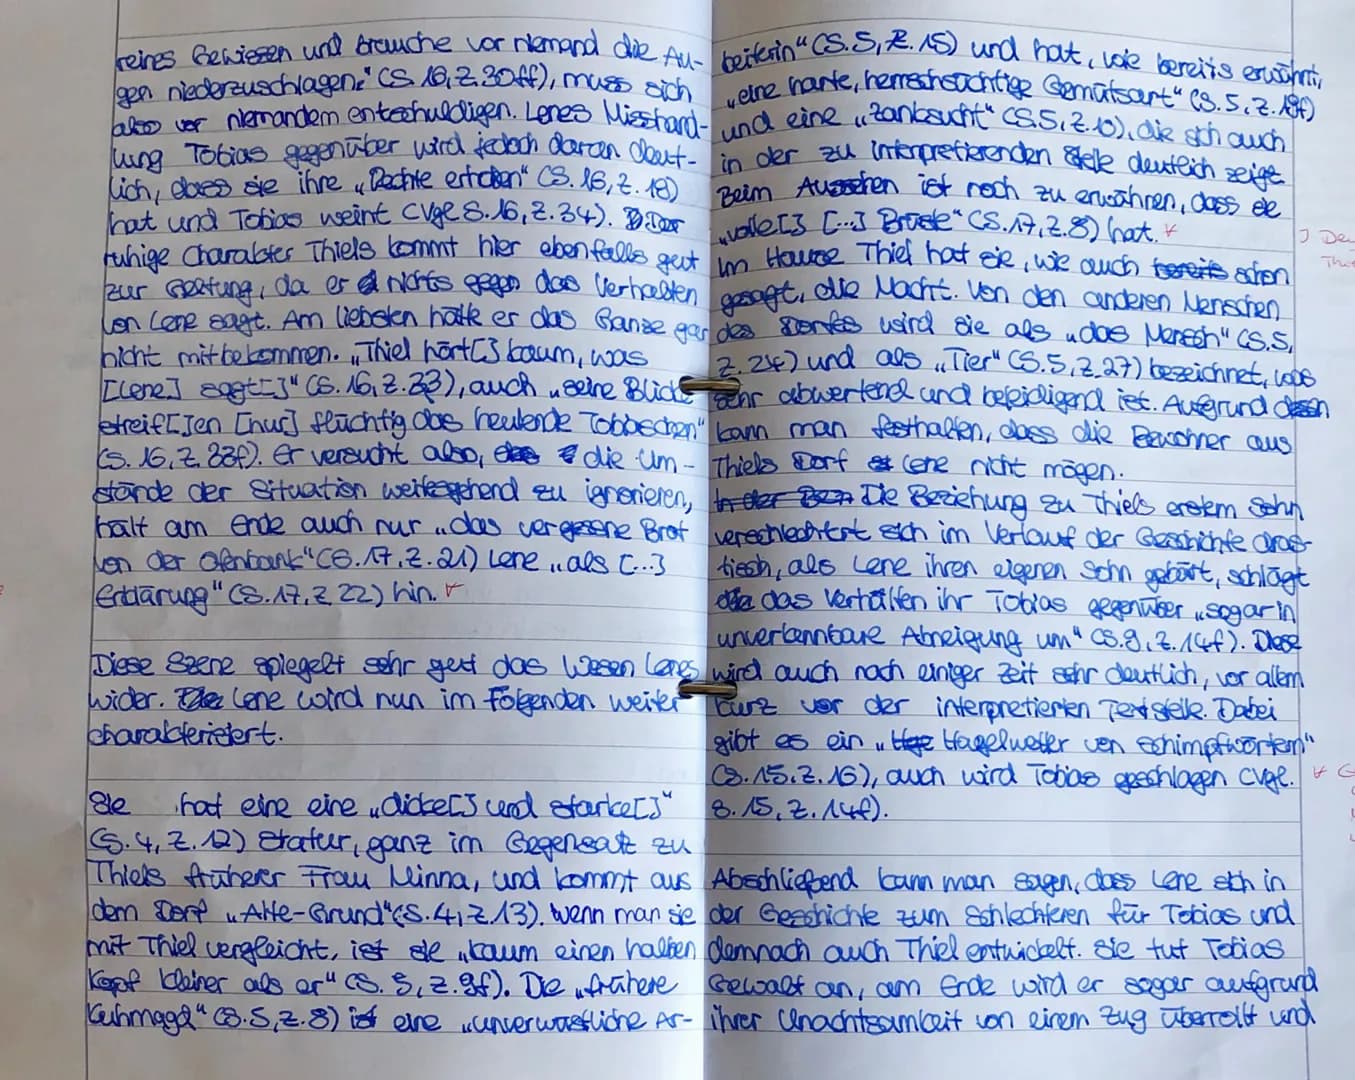 reines Gewissen und brauche vor niemand die Au-
gen niederzuschlagen." (S. 16, Z. 30ff), muss sich
also vor niemandem entschuldigen. Lenes Misshand-
lung Tobias gegenüber wird jedoch daran deut-
lich, dass sie ihre „Rechte erhoben" (S. 16, Z. 18)
hat und Tobias weint (vgl. S. 16, Z. 34). Der
ruhige Charakter Thiels kommt hier ebenfalls gut
zur Geltung, da er nichts gegen das Verhalten
von Lene sagt. Am liebsten hätte er das Ganze gar
nicht mitbekommen. „Thiel hört[] kaum, was
[Lene] sagt[]" (S. 16, Z. 33), auch „seine Blicke
streif[]en [nur] flüchtig das heulende Tobiaschen"
(S. 16, Z. 33f). Er versucht also, die Um-
stände der Situation weitesgehend zu ignorieren,
hält am Ende auch nur „das vergessene Brot
von der Ofenbank" (S. 17, Z. 21) Lene „als [...]
Erklärung" (S. 17, Z. 22) hin.
Diese Szene spiegelt sehr gut das Wesen Lenes
wider. Lene wird nun im Folgenden weiter
charakterisiert.
Sie hat eine eine „dicke[] und starke[]"
(S. 4, Z. 12) Statur, ganz im Gegensatz zu
Thiels früherer Frau Minna, und kommt aus
dem Dorf „Alte-Grund" (S. 4, Z. 13). Wenn man sie
mit Thiel vergleicht, ist sie „kaum einen halben
Kopf kleiner als er" (S. 5, Z. 9f). Die „frühere
Kuhmagd" (S. 5, Z. 8) ist eine „unverwüstliche Ar-
beiterin" (S. 5, Z. 15) und hat, wie bereits erwähnt,
„eine harte, herrschsüchtige Gemütsart" (S. 5, Z. 18f)
und eine „Zanksucht" (S. 5, Z. 10), die sich auch
in der zu interpretierenden Stelle deutlich zeigt.
Beim Aussehen ist noch zu erwähnen, dass sie
„volle[] [...] Brüste" (S. 17, Z. 8) hat.
Im Hause Thiel hat sie, wie auch bereits schon
gesagt, die Macht. Von den anderen Menschen
des Dorfes wird sie als „das Mensch" (S. 5,
Z. 24) und als „Tier" (S. 5, Z. 27) bezeichnet, was
sehr abwertend und beleidigend ist. Aufgrund dessen
kann man festhalten, dass die Bewohner aus
Thiels Dorf Lene nicht mögen.
In der Die Beziehung zu Thiels erstem Sohn
verschlechtert sich im Verlauf der Geschichte dras-
tisch, als Lene ihren eigenen Sohn gebärt, schlägt
das Verhalten ihr Tobias gegenüber „sogar in
unverkennbare Abneigung um" (S. 9, Z. 14f). Diese
wird auch nach einiger Zeit sehr deutlich, vor allem
kurz vor der interpretierten Textstelle. Dabei
gibt es ein „Hagelwetter von Schimpfworten"
(S. 15, Z. 16), auch wird Tobias geschlagen (vgl.
S. 15, Z. 14f).
Abschließend kann man sagen, dass Lene sich in
der Geschichte zum Schlechteren für Tobias und
demnach auch Thiel entwickelt. Sie tut Tobias
Gewalt an, am Ende wird er sogar aufgrund
ihrer Unachtsamkeit von einem Zug überrollt und